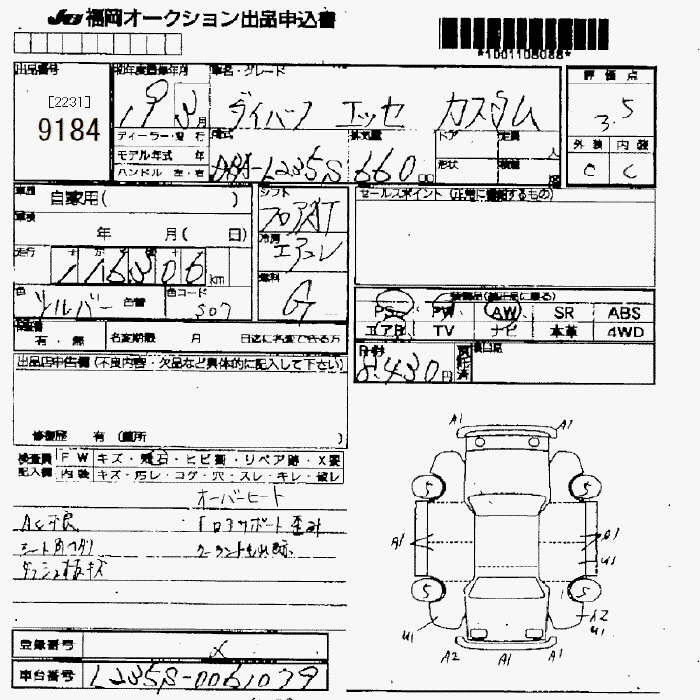 JU福岡オークション出品申込書
*1001108088*
出品番号
[2231]
9184
初年度登録年月
19 3月
車名・グレード
ダイハツ エッセ カスタム
評価点
3.5
外装 内装
C C
ディーラー・並行
モデル年式 年
ハンドル 左・右
型式
DBA-L235S
排気量
660 cc
ドア
形状
定員
人
積載
車歴
自家用( )
車検
年 月( 日)
走行
116306 km
色
シルバー
色替
色コード
S07
シフト
フロアAT
冷房
エアコン
燃料
G
セールスポイント(正常に機能するもの)
装備品(純正品に限る)
PS PW AW SR ABS
エアB TV ナビ 本革 4WD
有・無
名変期限 月 日迄に名変できる方
8,430円
出品店申告欄(不良内容・欠品など具体的に記入して下さい)
修復歴 有(箇所 )
検査員記入欄
FW キズ・飛石・ヒビ割・リペア跡・X要
内装 キズ・汚レ・コゲ・穴・スレ・キレ・破レ
オーバーヒート
A/C不良
コアサポート歪み
クーラントもれ跡
ダッシュ板キズ
A1 A1
5 5
A1
U1
5 5
U1 A2 A1 A1
A2
U1
登録番号
車台番号
L235S-0061079